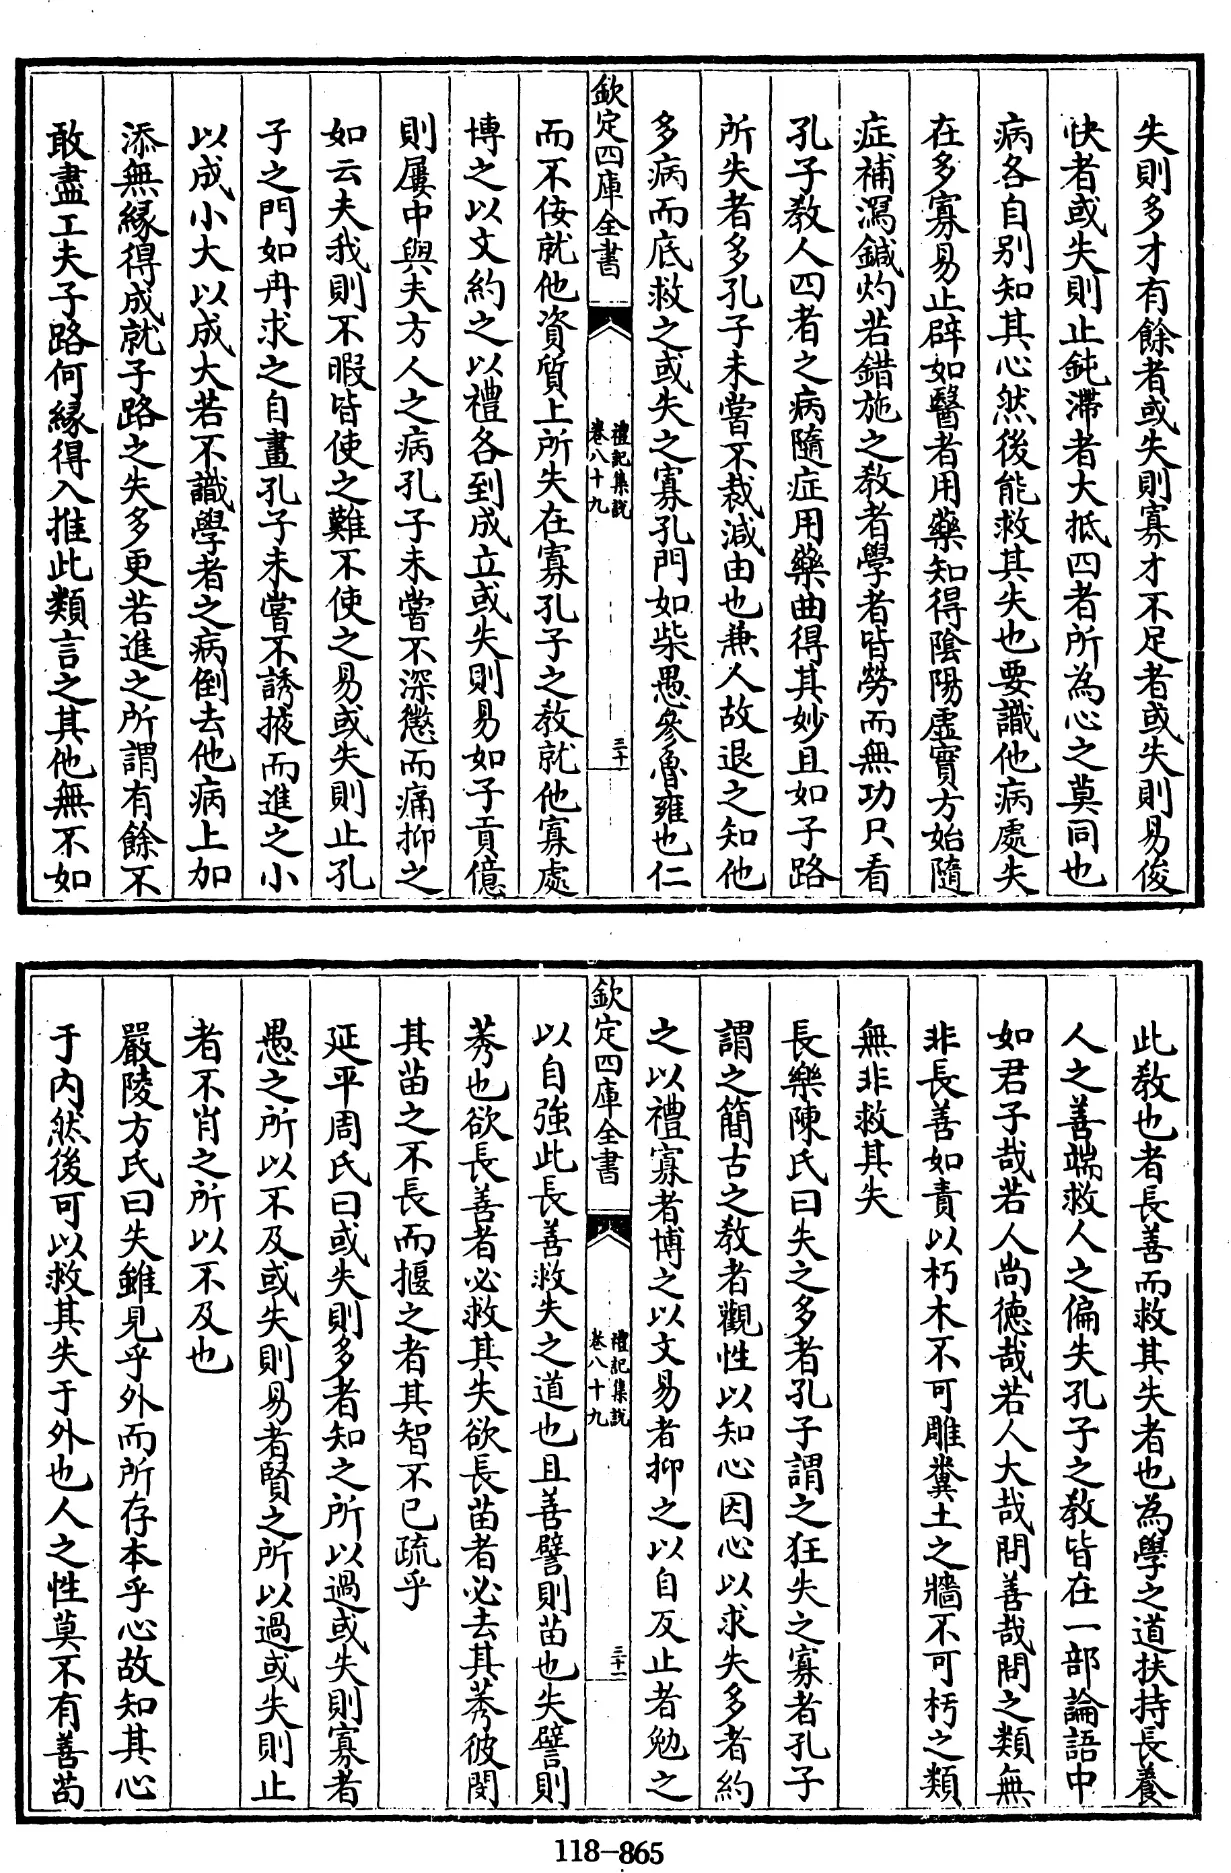 失則多才有餘者或失則寡才不足者或失則易俊
快者或失則止鈍滯者大抵四者所為心之莫同也
病各自别知其心然後能救其失也要識他病處失
在多寡易止辟如醫者用藥知得陰陽虛實方始隨
症補瀉鍼灼若錯施之教者學者皆勞而無功只看
孔子教人四者之病隨症用藥曲得其妙且如子路
所失者多孔子未嘗不裁減由也兼人故退之知他
多病而底救之或失之寡孔門如柴愚參魯雍也仁
欽定四庫全書
禮記集說
卷八十九
三十
而不佞就他資質上所失在寡孔子之教就他寡處
博之以文約之以禮各到成立或失則易如子貢億
則屢中與夫方人之病孔子未嘗不深懲而痛抑之
如云夫我則不暇皆使之難不使之易或失則止孔
子之門如冉求之自畫孔子未嘗不誘掖而進之小
以成小大以成大若不識學者之病倒去他病上加
添無緣得成就子路之失多更若進之所謂有餘不
敢盡工夫子路何緣得入推此類言之其他無不如
此教也者長善而救其失者也為學之道扶持長養
人之善端救人之偏失孔子之教皆在一部論語中
如君子哉若人尚徳哉若人大哉問善哉問之類無
非長善如責以朽木不可雕糞土之牆不可杇之類
無非救其失
長樂陳氏曰失之多者孔子謂之狂失之寡者孔子
謂之簡古之教者觀性以知心因心以求失多者約
之以禮寡者博之以文易者抑之以自反止者勉之
欽定四庫全書
禮記集說
卷八十九
三十一
以自強此長善救失之道也且善譬則苗也失譬則
莠也欲長善者必救其失欲長苗者必去其莠彼閔
其苗之不長而揠之者其智不已疏乎
延平周氏曰或失則多者知之所以過或失則寡者
愚之所以不及或失則易者賢之所以過或失則止
者不肖之所以不及也
嚴陵方氏曰失雖見乎外而所存本乎心故知其心
于内然後可以救其失于外也人之性莫不有善苟
118-865